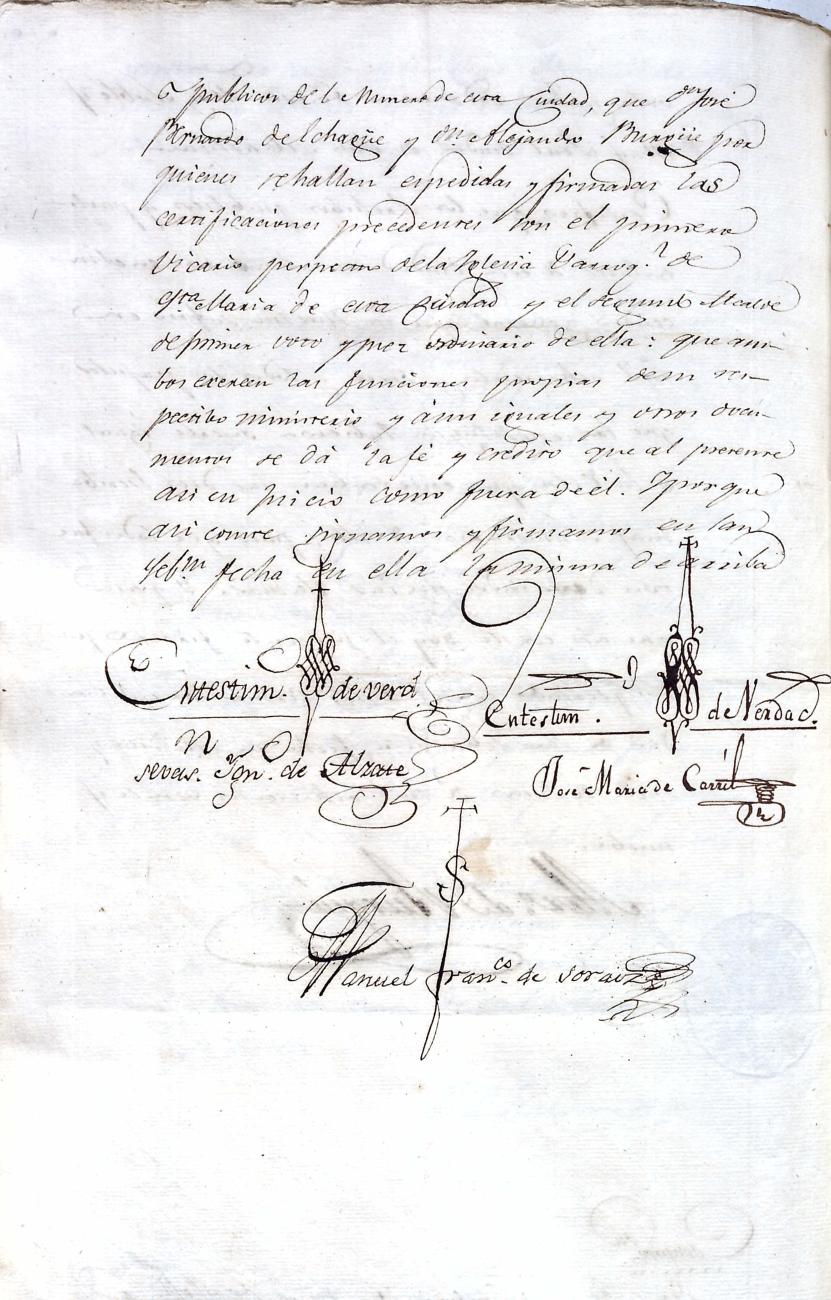 publicos del Numero de esta Ciudad, que Dn José
Bernardo de Echagüe y Dn. Alejandro Burgüe por
quienes se hallan espedidas y firmadas las
certificaciones precedentes son el primero
Vicario perpetuo de la Iglesia Parroq.l de
Sta Maria de esta Ciudad y el segundo Alcalde
de primer voto y juez ordinario de ella: que am-
bos exercen las funciones propias de su res-
pectibo ministerio y á sus iguales y otros docu-
mentos se dá la fé y credito que al presente
asi en Juicio como fuera de él. Y porque
asi conste signamos y firmamos en San
Sebn fecha en ella la misma de arriba
Entestim. de verd
Entestim. de Verdad.
Sevas. Ygn. de Alzate
José Maria de Carril
S
Manuel Franco. de Soraiz